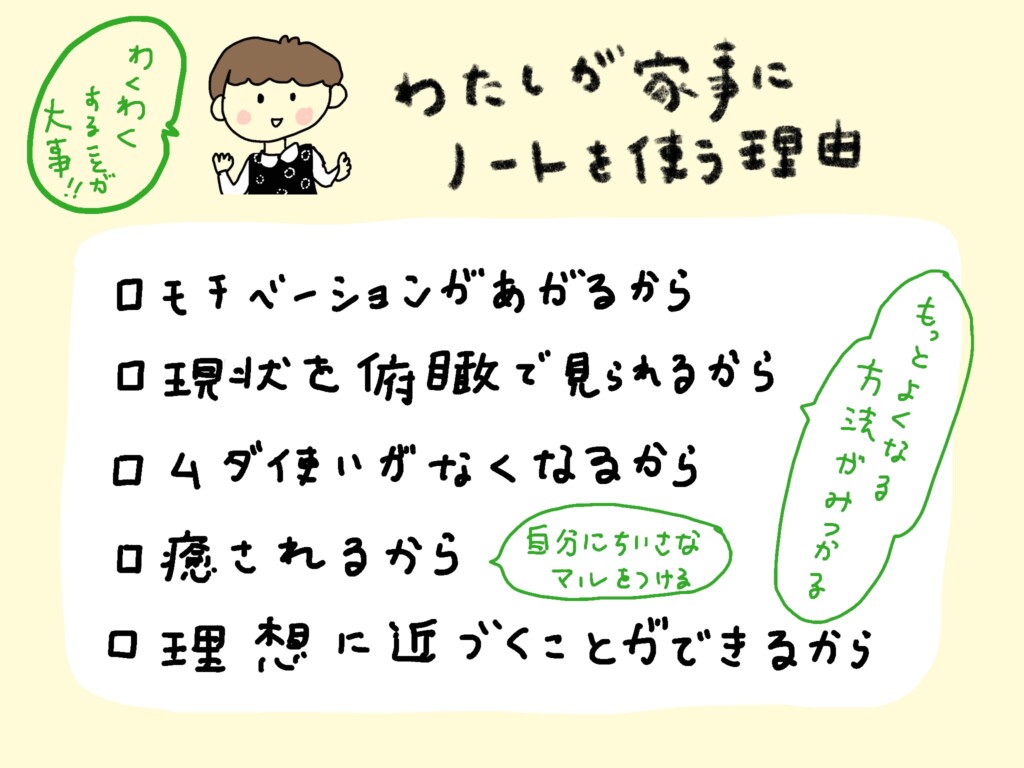 わくわく
することが
大事!!
わたしが家事に
ノートを使う理由
□モチベーションがあがるから
□現状を俯瞰で見られるから
□ムダ使いがなくなるから
□癒されるから
自分にちいさな
マルをつける
□理想に近づくことができるから
もっとよくなる
方法がみつかる